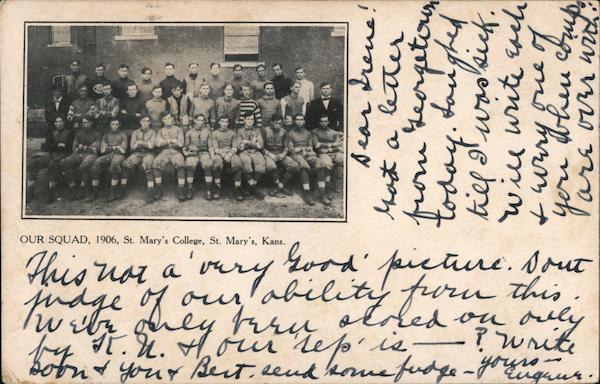 OUR SQUAD, 1906, St. Mary's College, St. Mary's, Kans.
Dear Irene!
Got a letter
from Georgetown
today. Laughed
till I was sick.
Will write each
& every one of
you when comps
are over with.
This not a 'very Good' picture. Dont
judge of our ability from this.
We've only been scored on only
by K. U. & our 'rep' is — ? Write
soon & you & Bert. send some fudge –
yours –
Eugene.